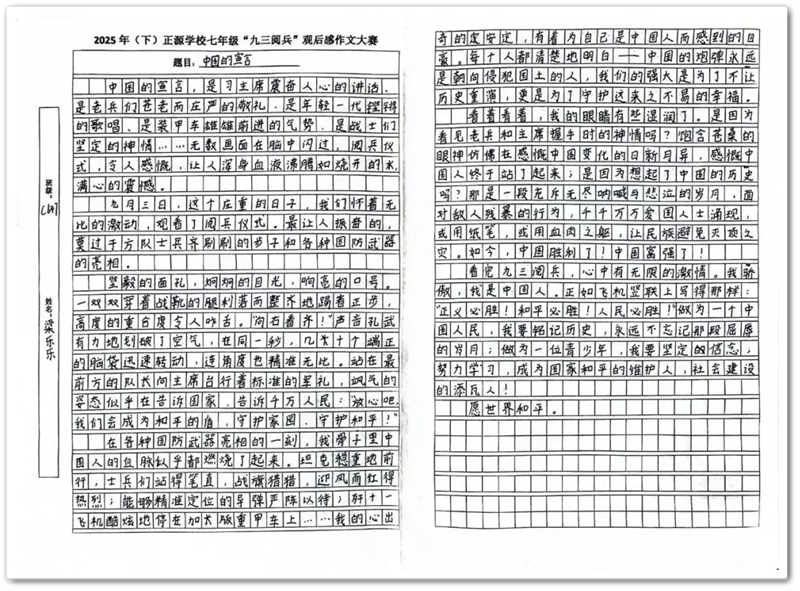 2025年（下）正源学校七年级“九三阅兵”观后感作文大赛
题目：中国的宣言
班级：
姓名：梁乐乐
中国的宣言，是习主席震奋人心的讲话、
是老兵们苍老而庄严的敬礼、是年轻一代铿锵
的歌唱、是装甲车雄雄前进的气势、是战士们
坚定的神情……无数画面在脑中闪过，阅兵仪
式，令人感慨，让人浑身血液沸腾如烧开的水，
满心的震撼。
九月三日，这个庄重的日子，我们怀着无
比的激动，观看了阅兵仪式。最让人振奋的，
莫过于方队士兵齐刷刷的步子和各种国防武器
的亮相。
坚毅的面孔，炯炯的目光，响亮的口号。
一双双穿着战靴的腿利落而整齐地踢着正步，
高度的重合度令人咋舌。“向右看齐！”声音孔武
有力地划破了空气，在同一秒，几十个端正
的脑袋迅速转动，连角度也精准无比。站在最
前方的队长向主席台行着标准的军礼，飒气的
姿态似乎在告诉国家，告诉千万人民：放心吧，
我们会成为和平的盾，守护家园、守护和平！”
在各种国防武器亮相的一刻，我骨子里中
国人的血脉似乎都燃烧了起来。坦克稳重地前
行，士兵们站得笔直，战旗猎猎，迎风而红得
热烈；能够精准定位的导弹严阵以待；歼十一
飞机酷炫地停在加长版重甲车上……我的心出
奇的定安定，有着为自己是中国人而感到的自
豪。每个人都清楚地明白——中国的炮弹永远
是朝向侵犯国土的人，我们的强大是为了不让
历史重演，更是为了守护这来之不易的幸福。
看着看着，我的眼睛有些湿润了。是因为
看见老兵和主席握手时的神情吗？饱含苍桑的
眼神仿佛在感慨中国变化的日新月异，感慨中
国人终于站了起来；是因为想起了中国的历史
吗？那是一段充斥无尽呐喊与悲泣的岁月，面
对敌人残暴的行为，千千万万爱国人士涌现，
或用纸笔，或用血肉之躯，让民族避免灭顶之
灾。如今，中国胜利了！中国富强了！
看完九三阅兵，心中有无限的激情。我骄
傲，我是中国人。正如飞机竖联上写得那样：
“正义必胜！和平必胜！人民必胜！”做为一个中
国人民，我要铭记历史，永远不忘记那段屈辱
的岁月；做为一位青少年，我要坚定的信念，
努力学习，成为国家和平的维护人，社会建设
的添瓦人！
愿世界和平。